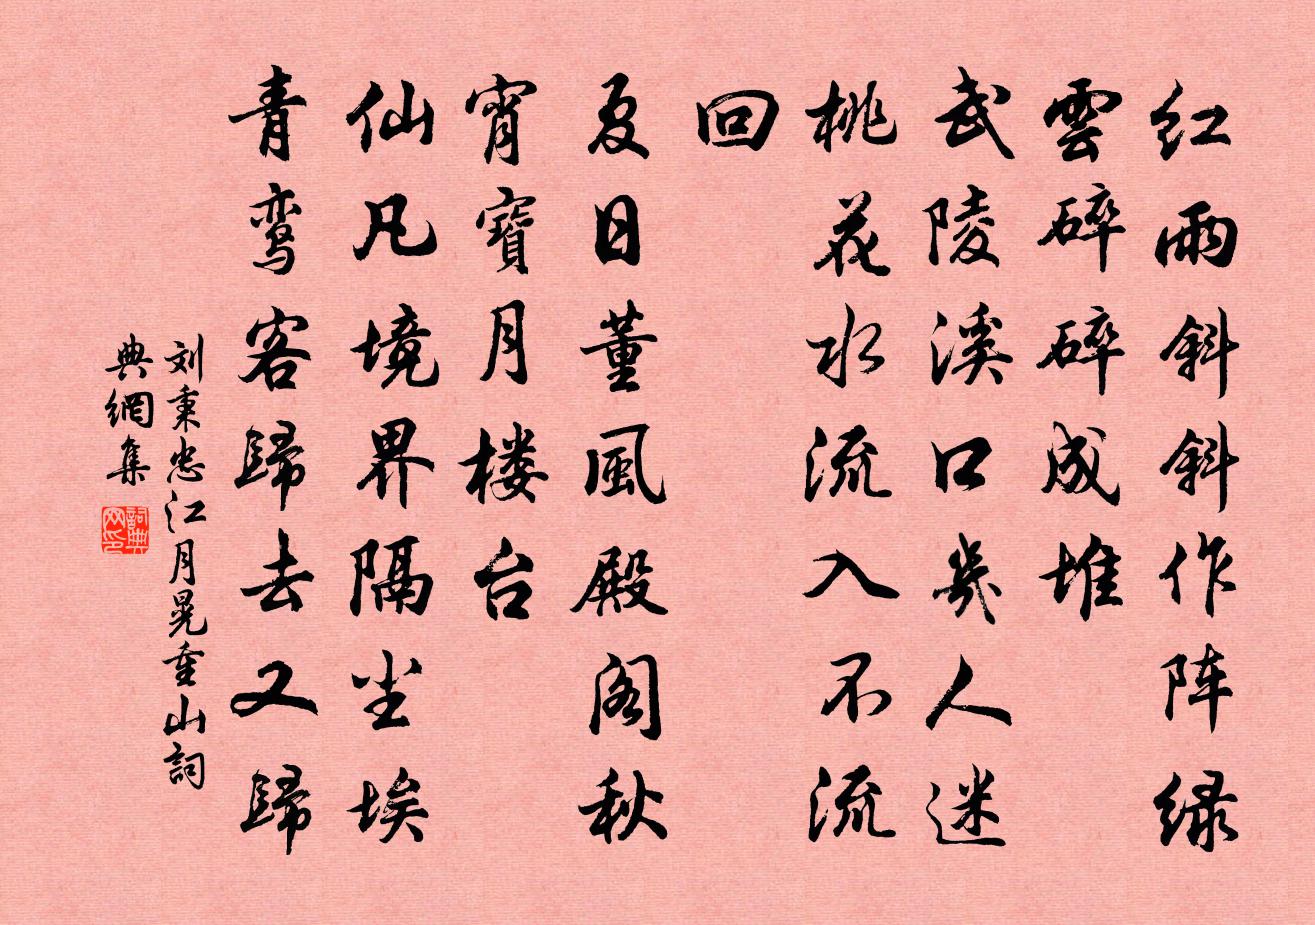 红雨斜斜作阵绿
雲碎碎成堆
武陵溪口幾人迷
桃花水流入不流
回
夏日董風殿阁秋
宵寶月楼台
仙凡境界隔尘埃
青鸾客歸去又歸
刘秉忠江月晃重山詞
典網集
詞典
网印